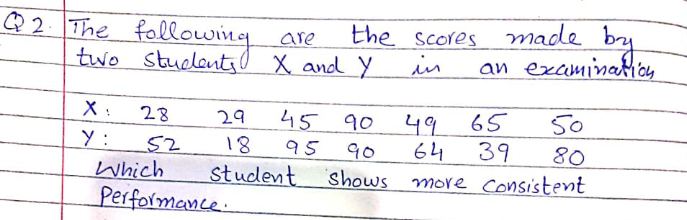 Q2. The following are the scores made by
two students X and Y in an examination
X: 28 29 45 90 49 65 50
Y: 52 18 95 90 64 39 80
Which student shows more consistent
Performance.